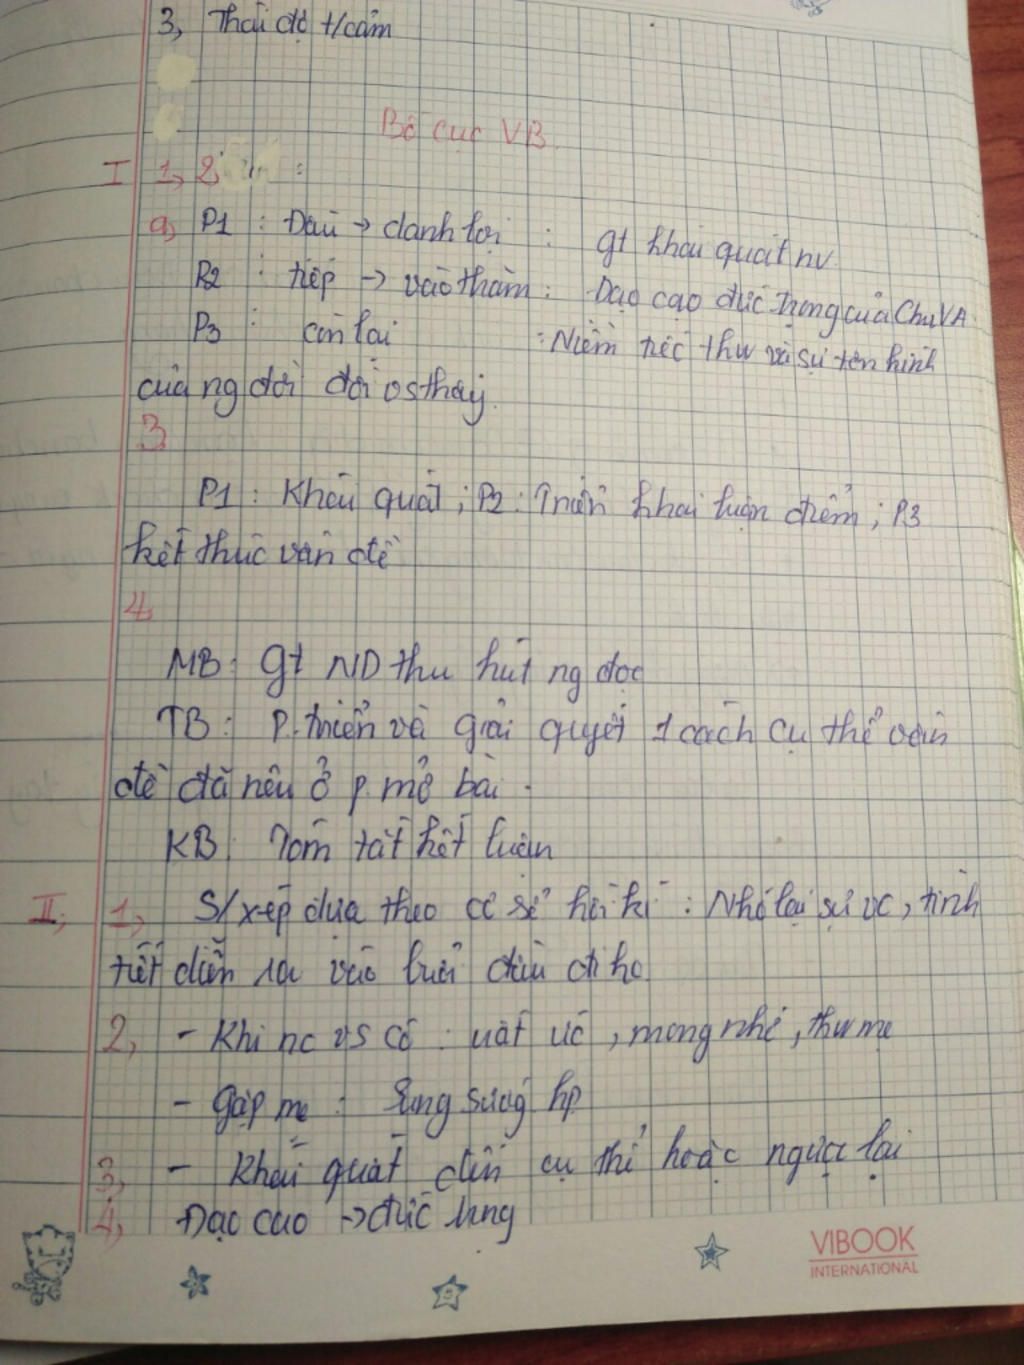 3, Thái độ t/cảm
Bố cục VB
I 1, 2 :
a, P1 : Đầu → danh lợi : gt khái quát nv
P2 : tiếp → vào thăm : Đạo cao đức trọng của Chu VA
P3 : còn lại : Niềm tiếc thư và sự tôn kính
của ng đời đối vs thầy.
3,
P1 : Khái quát ; P2 : Triển khai luận điểm ; P3
kết thúc vấn đề
4,
MB : gt ND thu hút ng đọc
TB : P. triển và giải quyết 1 cách cụ thể vấn
đề đã nêu ở p mở bài.
KB : Tóm tắt kết luận
II, 1, S/xếp dựa theo cơ sở hồi kí : Nhớ lại sự vc, tình
tiết diễn ra vào buổi đầu đi họ
2, - Khi nc vs cô : uất ức, mong nhớ, thư mẹ
- Gặp mẹ : Sung sướng hp
3, - Khái quát đến cụ thể hoặc ngược lại
4, Đạo cao → đức trng
VIBOOK
INTERNATIONAL